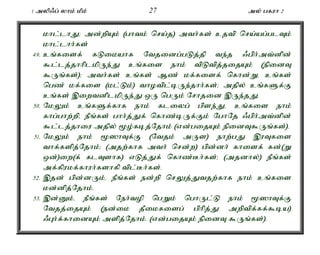 1 அலிஃப் லாம் மீம் 27 அல் பகரா 2
மாட்டாது; அன்றியும் (பாவம் செய்த) அவர்கள் உதவி செய்யப்படவும்
மாட்டார்கள்
49. உங்களைக் கடுமையாக வேதனைப்படுத்தி வந்த ஃபிர்அவ்னின்
கூட்டத்தாரிடமிருந்து உங்களை நாம் விடுவித்ததையும் (நினைவு
கூருங்கள்); அவர்கள் உங்கள் ஆண் மக்களைக் கொன்று, உங்கள்
பெண் மக்களை (மட்டும்) வாழவிட்டிருந்தார்கள்; அதில் உங்களுக்கு
உங்கள் இறைவனிடமிருந்து ஒரு பெரும் சோதனை இருந்தது.
50. மேலும் உங்களுக்காக நாம் கடலைப் பிளந்து, உங்களை நாம்
காப்பாற்றி, நீங்கள் பார்த்துக் கொண்டிருக்கும் போதே ஃபிர்அவ்னின்
கூட்டத்தாரை அதில் மூழ்கடித்தோம் (என்பதையும் நினைவுகூருங்கள்).
51. மேலும் நாம் மூஸாவுக்கு (வேதம் அருள) நாற்பது இரவுகளை
வாக்களித்தோம்; (அதற்காக அவர் சென்ற) பின்னர் காளைக் கன்(று
ஒன்)றை(க் கடவுளாக) எடுத்துக் கொண்டீர்கள்; (அதனால்) நீங்கள்
அக்கிரமக்காரர்களாகி விட்டீர்கள்.
52. இதன் பின்னரும், நீங்கள் நன்றி செலுத்துவதற்காக நாம் உங்களை
மன்னித்தோம்.
53. இன்னும், நீங்கள் நேர்வழி பெறும் பொருட்டு நாம் மூஸாவுக்கு
வேதத்தையும் (நன்மை தீமைகளைப் பிரித்து அறிவிக்கக்கூடிய)
ஃபுர்க்கானையும் அளித்தோம். (என்பதையும் நினைவு கூருங்கள்).